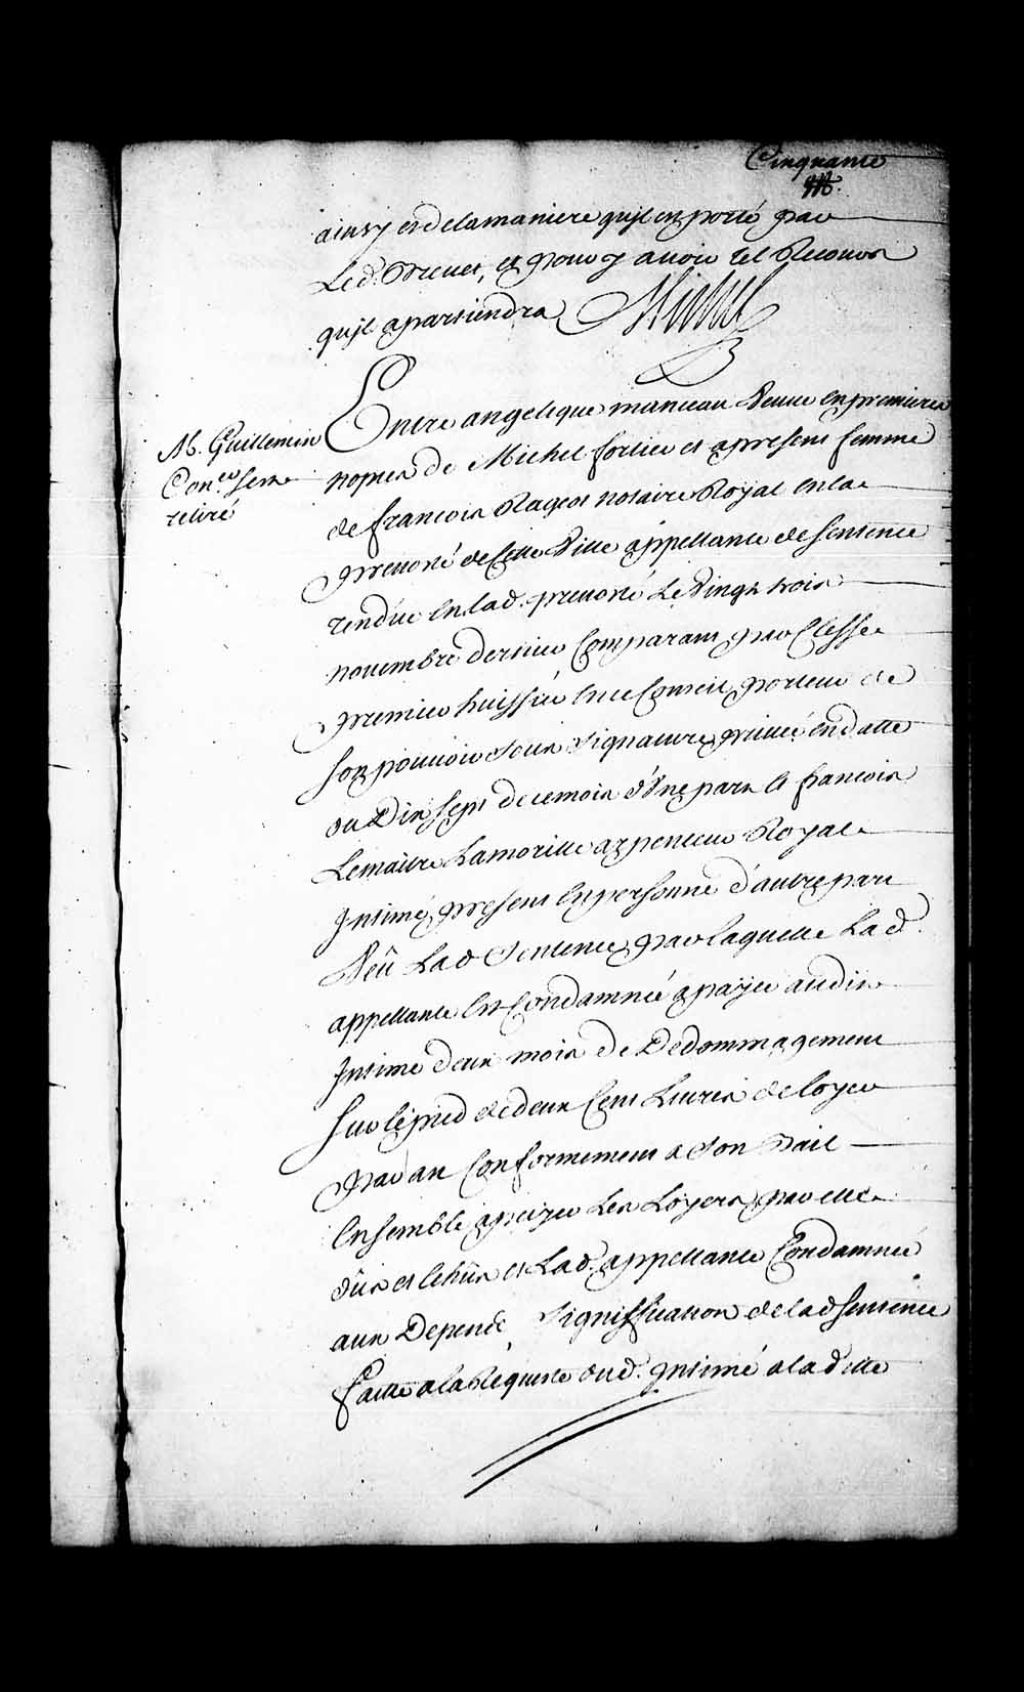 Cinquante
ainsy et de la maniere qu'il est porté par
Led. Brevet, et pour y avoir tel Recours
qu'il apartiendra Michel
M. Guillemin
Con.er sera
retiré
Entre angelique manseau Veuve en premieres
nopces de Michel fortier et apresent femme
de francois Rageot notaire Royal en la
prevosté de Cette Ville appellante de sentence
rendüe en lad. prevosté Le Vingt trois
novembre dernier Comparant par Clesse
premier huissier en ce Conseil porteur de
son pouvoir sous signature privée en datte
du Dix sept de ce mois d'Une part et francois
Lemaitre Lamorille arpenteur Royal
Intimé present en personne d'autre part
Veû Lad Sentence par laquelle Lad.
appellante est Condamnée a payer audit
Intimé deux mois de Dedommagement
sur le pied de deux Cens Livres de loyer
par an Conformement a son Bail
Ensemble a payer Les Loyers par elle
dûs et echûs et Lad. appellante Condamnée
aux Depens, signiffication de lad sentence
faitte a la Requeste dud. Intimé a la ditte